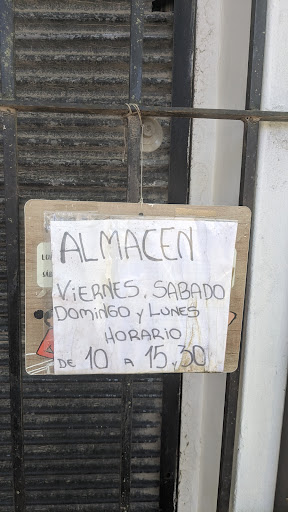 ALMACEN
ViERNES, SABADO
DOMiNGO y LUNES
HORARIO
DE 10 A 15 y 30